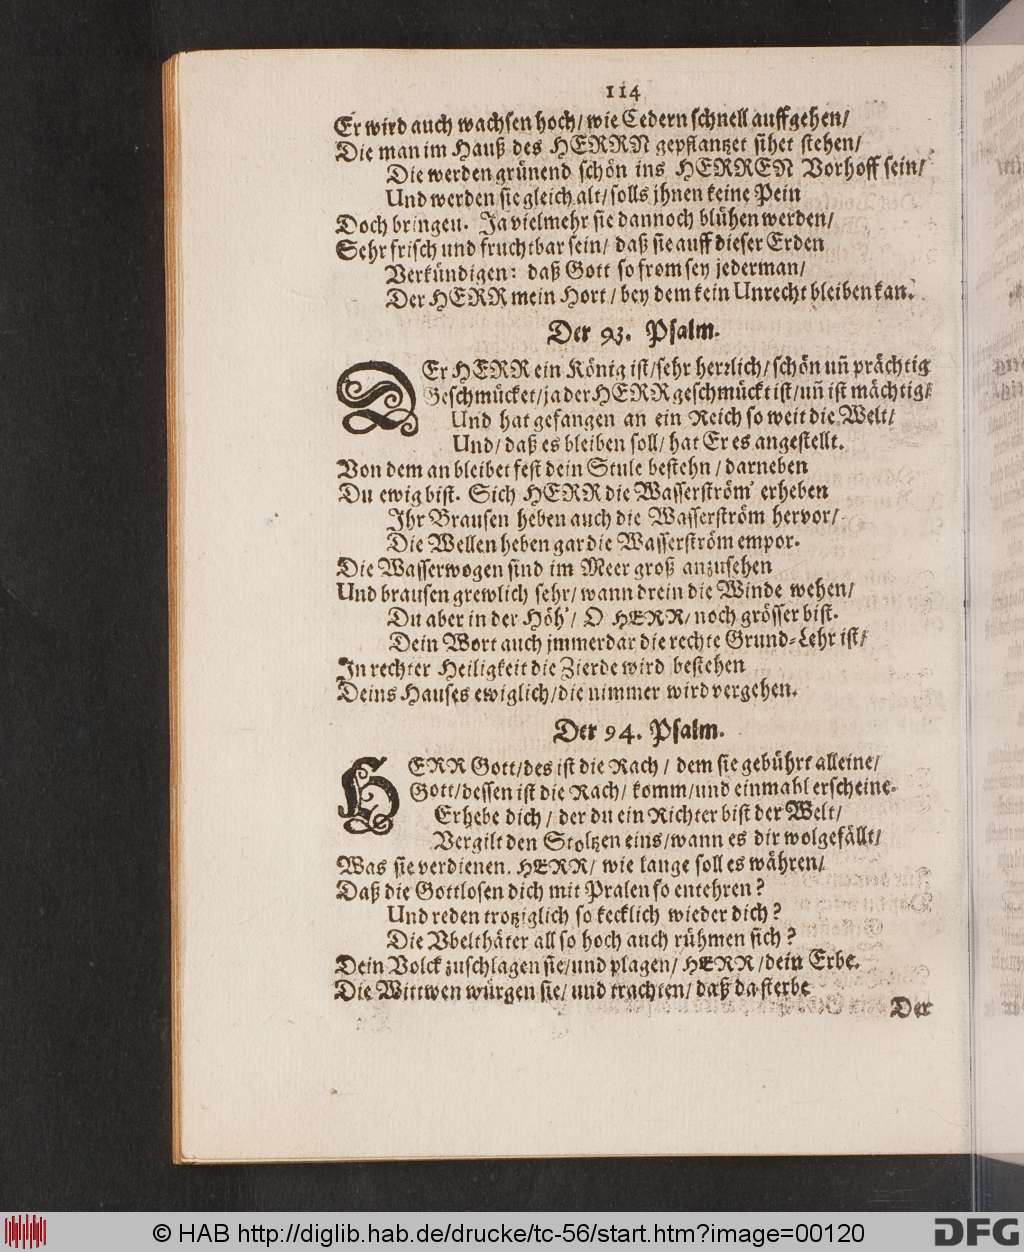 114
Er wird auch wachsen hoch/ wie Cedern schnell auffgehen/
Die man im Hauß des HERRN gepflantzet sihet stehen/
Die werden grünend schön ins HERREN Vorhoff sein/
Und werden sie gleich alt/ solls jhnen keine Pein
Doch bringen. Ja vielmehr sie dannoch blühen werden/
Sehr frisch und fruchtbar sein/ daß sie auff dieser Erden
Verkündigen: daß Gott so from sey jederman/
Der HERR mein Hort/ bey dem kein Unrecht bleiben kan.
Der 93. Psalm.
DEr HERR ein König ist/ sehr herrlich/ schön uñ prächtig
Geschmücket/ ja der HERR geschmückt ist/ uñ ist mächtig/
Und hat gefangen an ein Reich so weit die Welt/
Und/ daß es bleiben soll/ hat Er es angestellt.
Von dem an bleibet fest dein Stule bestehn/ darneben
Du ewig bist. Sich HERR die Wasserström' erheben
Ihr Brausen heben auch die Wasserström hervor/
Die Wellen heben gar die Wasserström empor.
Die Wasserwogen sind im Meer groß anzusehen
Und brausen grewlich sehr/ wann drein die Winde wehen/
Du aber in der Höh'/ O HERR/ noch grösser bist.
Dein Wort auch jmmerdar die rechte Grund-Lehr ist/
In rechter Heiligkeit die Zierde wird bestehen
Deins Hauses ewiglich/ die nimmer wird vergehen.
Der 94. Psalm.
HERR Gott/ des ist die Rach/ dem sie gebührt alleine/
Gott/ dessen ist die Rach/ komm/ und einmahl erscheine.
Erhebe dich/ der du ein Richter bist der Welt/
Vergilt den Stoltzen eins/ wann es dir wolgefällt/
Was sie verdienen. HERR/ wie lange soll es währen/
Daß die Gottlosen dich mit Pralen so entehren?
Und reden trotziglich so kecklich wieder dich?
Die Vbelthäter all so hoch auch rühmen sich?
Dein Volck zuschlagen sie/ und plagen/ HERR/ dein Erbe.
Die Wittwen würgen sie/ und trachten/ daß da sterbe
Der
© HAB http://diglib.hab.de/drucke/tc-56/start.htm?image=00120
DFG